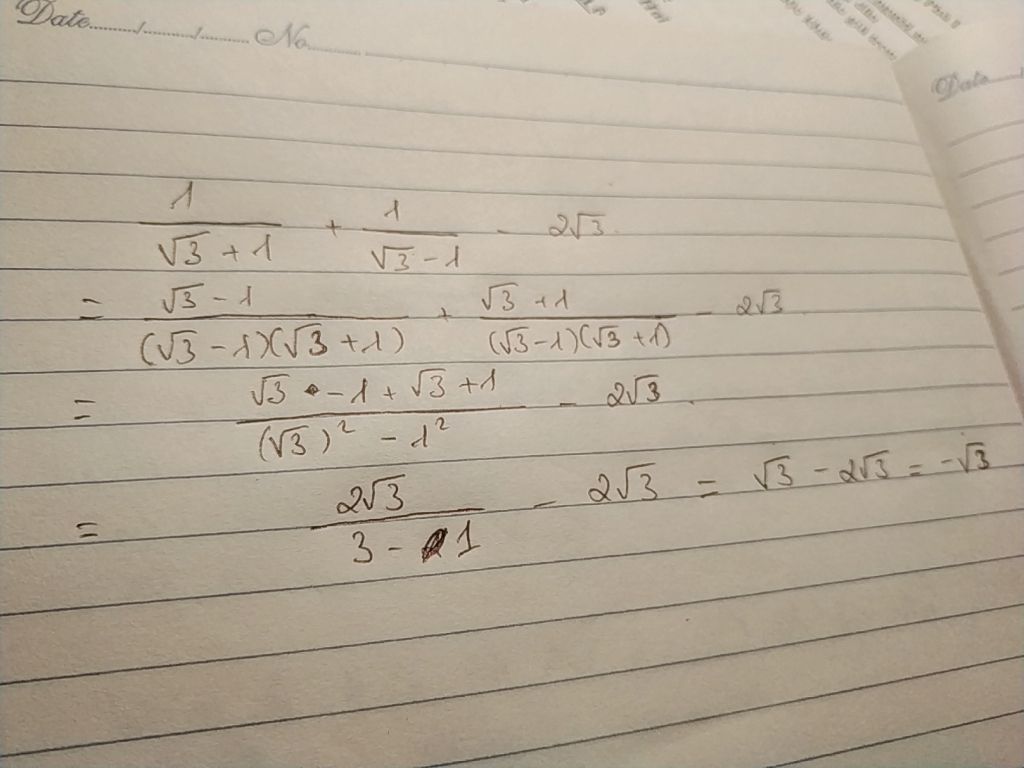 Date......./......./....... No.......
Date
1/(√3 + 1) + 1/(√3 - 1) - 2√3
= (√3 - 1)/((√3 - 1)(√3 + 1)) + (√3 + 1)/((√3 - 1)(√3 + 1)) - 2√3
= (√3 - 1 + √3 + 1)/((√3)² - 1²) - 2√3
= 2√3/(3 - 1) - 2√3 = √3 - 2√3 = -√3